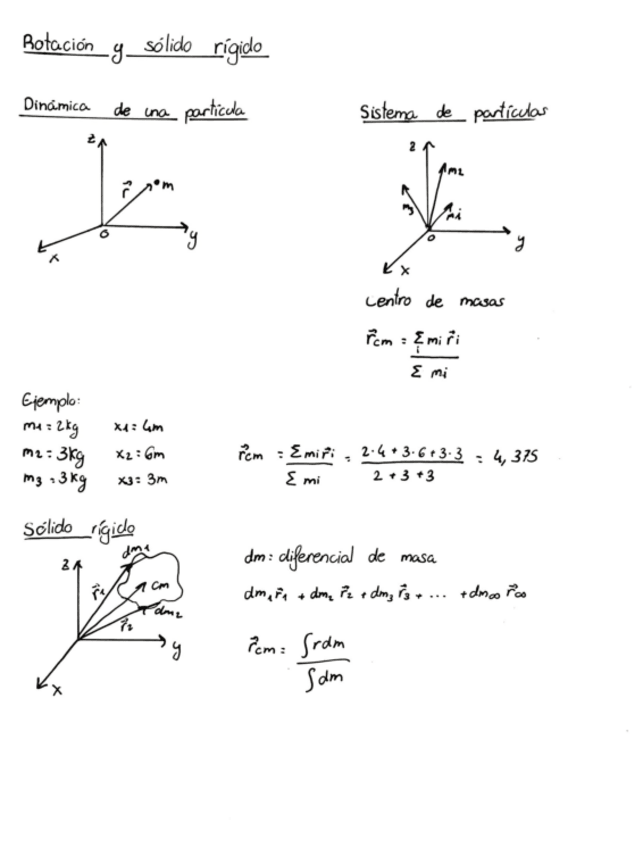 Rotación y sólido rígido
Dinámica de una partícula
z
r⃗
m
o
y
x
Sistema de partículas
z
m2
m3
mi
o
y
x
Centro de masas
r⃗cm = Σ mi r⃗i
i
Σ mi
Ejemplo:
m1 = 2kg x1 = 4m
m2 = 3kg x2 = 6m
m3 = 3kg x3 = 3m
r⃗cm = Σmir⃗i / Σ mi = 2·4 + 3·6 + 3·3 / 2 + 3 + 3 = 4,375
Sólido rígido
z
dm1
r⃗1
cm
dm2
r⃗2
y
x
dm: diferencial de masa
dm1 r⃗1 + dm2 r⃗2 + dm3 r⃗3 + ... + dm∞ r⃗∞
r⃗cm = ∫rdm
∫dm